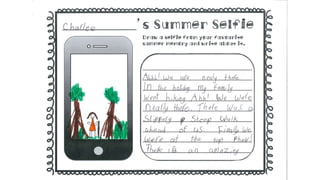 Charlee's Summer Selfie
Draw a selfie from your favourite
summer memory and write about it.
Ahh! We are nearly there
In the holiday my family
went hiking Ahh! We were
nearly there. There was a
Slippery Steep Walk
ahead of us. Finally We
were at the top Phew!
There is an amazing